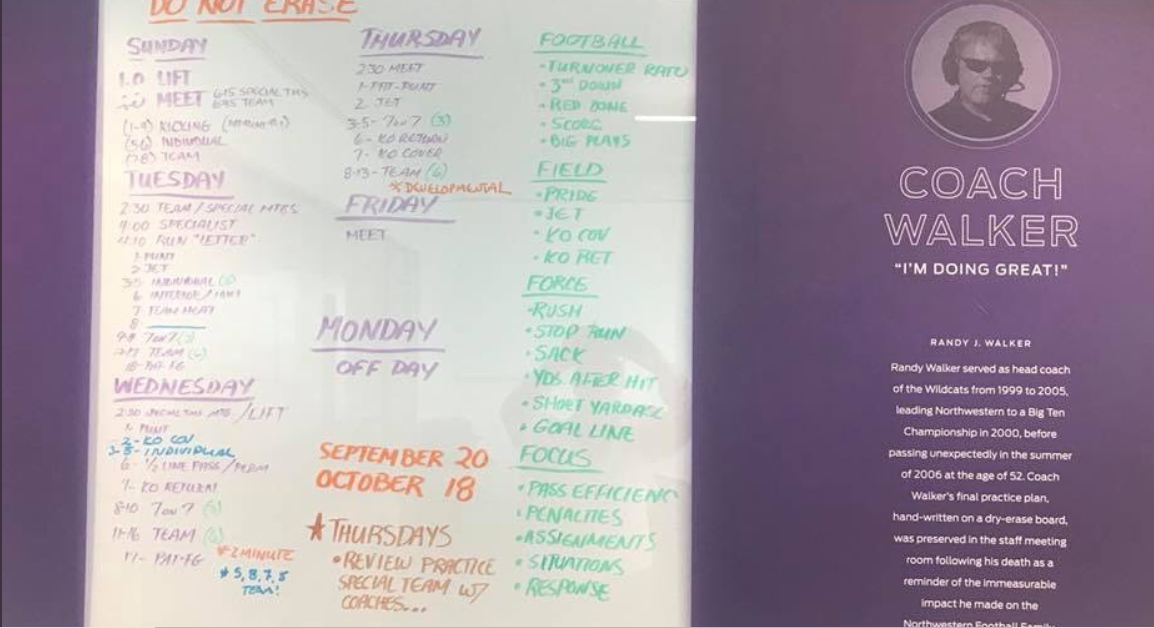 DO NOT ERASE
SUNDAY
1.0 LIFT
MEET 6:15 SPECIAL TMS
6:45 TEAM
(1-4) KICKING
(5-6) INDIVIDUAL
(7-8) TEAM
TUESDAY
2:30 TEAM / SPECIAL MTGS
4:00 SPECIALIST
4:10 RUN "LETTER"
1-PUNT
2-JET
3-5 INDIVIDUAL
6
7 TEAM
8
7 on 7
TEAM (6)
18- PAT-FG
WEDNESDAY
2:30 SPECIAL TMS MTG /LIFT
1- PUNT
2-KO COV
3-5-INDIVIDUAL
6- 1/2 LINE PASS /
7- KO RETURN
8-10 7 on 7 (3)
11-16 TEAM (6)
17- PAT-FG
*2 MINUTE
* 5, 8, 7, 5
TEAM!
THURSDAY
2:30 MEET
1-PAT-PUNT
2 JET
3-5- 7 on 7 (3)
6- KO RETURN
7- KO COVER
8-13- TEAM (6)
* DEVELOPMENTAL
FRIDAY
MEET
MONDAY
OFF DAY
SEPTEMBER 20
OCTOBER 18
★THURSDAYS
•REVIEW PRACTICE
SPECIAL TEAM W/
COACHES...
FOOTBALL
-TURNOVER RATIO
• 3RD DOWN
• RED ZONE
• SCORE
• BIG PLAYS
FIELD
•PRIDE
•JET
• KO COV
• KO RET
FORCE
-RUSH
•STOP RUN
• SACK
• YDS AFTER HIT
• SHORT YARDAGE
• GOAL LINE
FOCUS
•PASS EFFICIENC
•PENALITES
•ASSIGNMENTS
• SITUATIONS
• RESPONSE
COACH
WALKER
"I'M DOING GREAT!"
RANDY J. WALKER
Randy Walker served as head coach
of the Wildcats from 1999 to 2005,
leading Northwestern to a Big Ten
Championship in 2000, before
passing unexpectedly in the summer
of 2006 at the age of 52. Coach
Walker's final practice plan,
hand-written on a dry-erase board,
was preserved in the staff meeting
room following his death as a
reminder of the immeasurable
impact he made on the
Northwestern Football Family